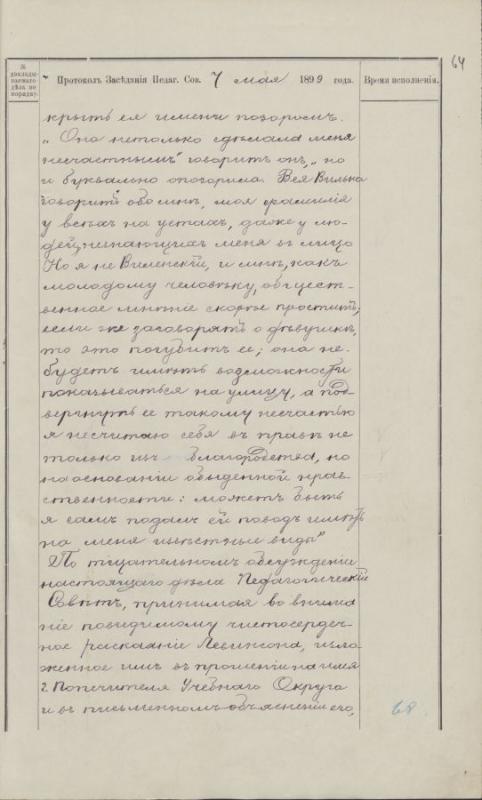 64
№ докладываемаго дѣла по порядку.
Протоколъ Засѣданія Педаг. Сов. 7 мая 1899 года.
Время исполненія.
крыть ея имени позоромъ.
„Она нетолько сдѣлала меня
несчастнымъ" говоритъ онъ, „но
и буквально опозорила. Вся Вильна
говоритъ обо мнѣ, моя фамилія
у всѣхъ на устахъ, даже у лю-
дей, незнающихъ меня въ лицо
Но я не Виленскій, и мнѣ, какъ
молодому человѣку, общест-
венное мнѣніе скорѣе проститъ;
если же заговорятъ о дѣвушкѣ,
то это погубитъ ее; она не
будетъ имѣть возможности
показываться на улицу, а под-
вергнуть ее такому несчастью
я несчитаю себя въ правѣ не
только изъ благородства, но
на основаніи обыденной нрав-
ственности: можетъ быть
я самъ подалъ ей поводъ имѣть
на меня извѣстные виды"
По тщательномъ обсужденіи
настоящаго дѣла Педагогическій
Совѣтъ, принимая во внима
ніе повидимому чистосердеч-
ное раскаяніе Левинсона, изло-
женное имъ въ прошеніи на имя
г. Попечителя Учебнаго Округа
и въ письменномъ объясненіи его,
68.